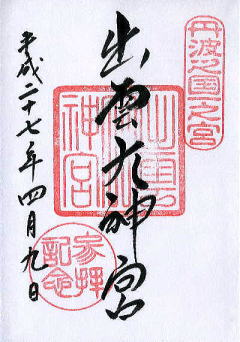 丹波之国一之宮
出雲大神宮
出雲大神宮
参拝記念
平成二十七年四月九日